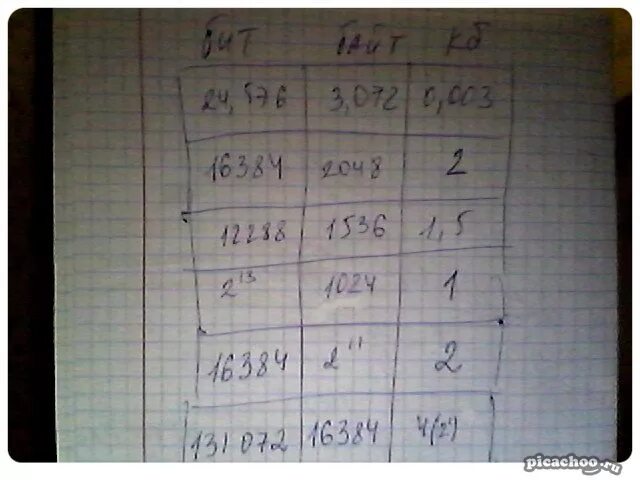 бит байт Кб
24,576 3,072 0,003
16384 2048 2
12288 1536 1,5
2¹³ 1024 1
16384 2¹¹ 2
131072 16384
picachoo.ru